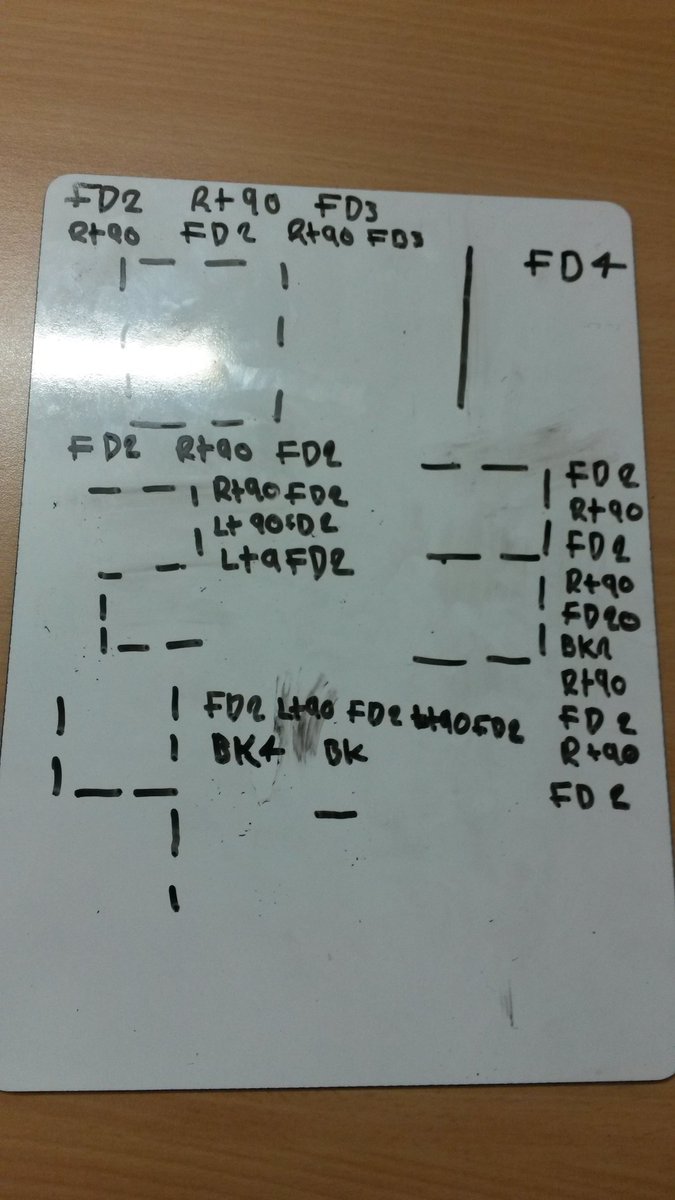 FD2 Rt90 FD3
Rt90 FD2 Rt90 FD3
FD4
FD2 Rt90 FD2
Rt90 FD2
Lt90FD2
Lt9FD2
FD2
Rt90
FD2
Rt90
FD20
BK2
Rt90
FD2
Rt90
FD2
FD2 Lt90 FD2 Lt90FD2
BK4 BK